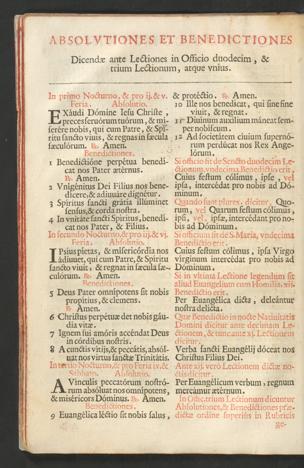 ABSOLVTIONES ET BENEDICTIONES
Dicendæ ante Lectiones in Officio duodecim, &
trium Lectionum, atque vnius.
In primo Nocturno, & pro ij. & v.
Feria. Absolutio.
EXáudi Dómine Iesu Christe,
preces seruórum tuórum, & mi-
serére nobis, qui cum Patre, & Spí-
ritu sancto viuis, & regnas in sæcula
sæculórum. ℟. Amen.
Benedictiones.
1 Benedictióne perpétua benedí-
cat nos Pater ætérnus.
℟. Amen.
2 Vnigénitus Dei Fílius nos bene-
dícere, & adiuuáre dignétur.
3 Spíritus sancti grátia illúminet
sensus, & corda nostra.
4 In vnitáte sancti Spíritus, benedí-
cat nos Pater, & Fílius.
In secundo Nocturno, & pro iij. & vj.
Feria. Absolutio.
IPsíus píetas, & misericórdia nos
ádiuuet, qui cum Patre, & Spíritu
sancto viuit, & regnat in sæcula sæ-
culórum. ℟. Amen.
Benedictiones.
5 Deus Pater omnípotens sit nobis
propítius, & clemens.
℟. Amen.
6 Christus perpétuæ det nobis gáu-
dia vitæ.
7 Ignem sui amóris accéndat Deus
in córdibus nostris.
8 A cunctis vítijs, & peccátis, absól-
uat nos virtus sanctæ Trinitátis.
In tertio Nocturno, & pro iv. Feria, &
Sabbato. Absolutio.
A Vínculis peccatórum nostró-
rum absóluat nos omnípotens,
& miséricors Dóminus. ℟. Amen.
Benedictiones.
9 Euangélica léctio sit nobis salus,
& protéctio. ℟. Amen.
10 Ille nos benedícat, qui sine fine
viuit, & regnat.
11 Diuínum auxílium máneat sem-
per nobíscum.
12 Ad societátem cíuium supernó-
rum perdúcat nos Rex Ange-
lórum.
Si officio fit de Sancto duodecim Le-
ctionum vndecima Benedictio erit,
Cuius festum cólimus, ipse, vel
ipsa, intercédat pro nobis ad Dó-
minum.
Quando sunt plures, dicitur, Quo-
rum, vel Quarum festum cólimus,
ipsi, vel ipsæ, intercédant pro no-
bis ad Dóminum.
Si officium fit de S. Maria, vndecima
Benedictio erit.
Cuius festum cólimus, ipsa Virgo
vírginum intercédat pro nobis ad
Dóminum.
Si in vltima Lectione legendum sit
aliud Euangelium cum Homilia, xij.
Benedictio erit.
Per Euangélica dicta, deleántur
nostra delícta.
Quæ Benedictio in nocte Natiuitatis
Domini dicitur ante decimam Le-
ctionem, & tunc ante xj. Lectionem
dicitur,
Verba sancti Euangélij dóceat nos
Christus Fílius Dei.
Ante xij. verò Lectionem dicitur,
Per Euangélicum verbum, regnum
mereámur ætérnum.
In Officio trium Lectionum dicuntur
Absolutiones, & Benedictiones præ-
dictæ ordine superiùs in Rubricis
ge-